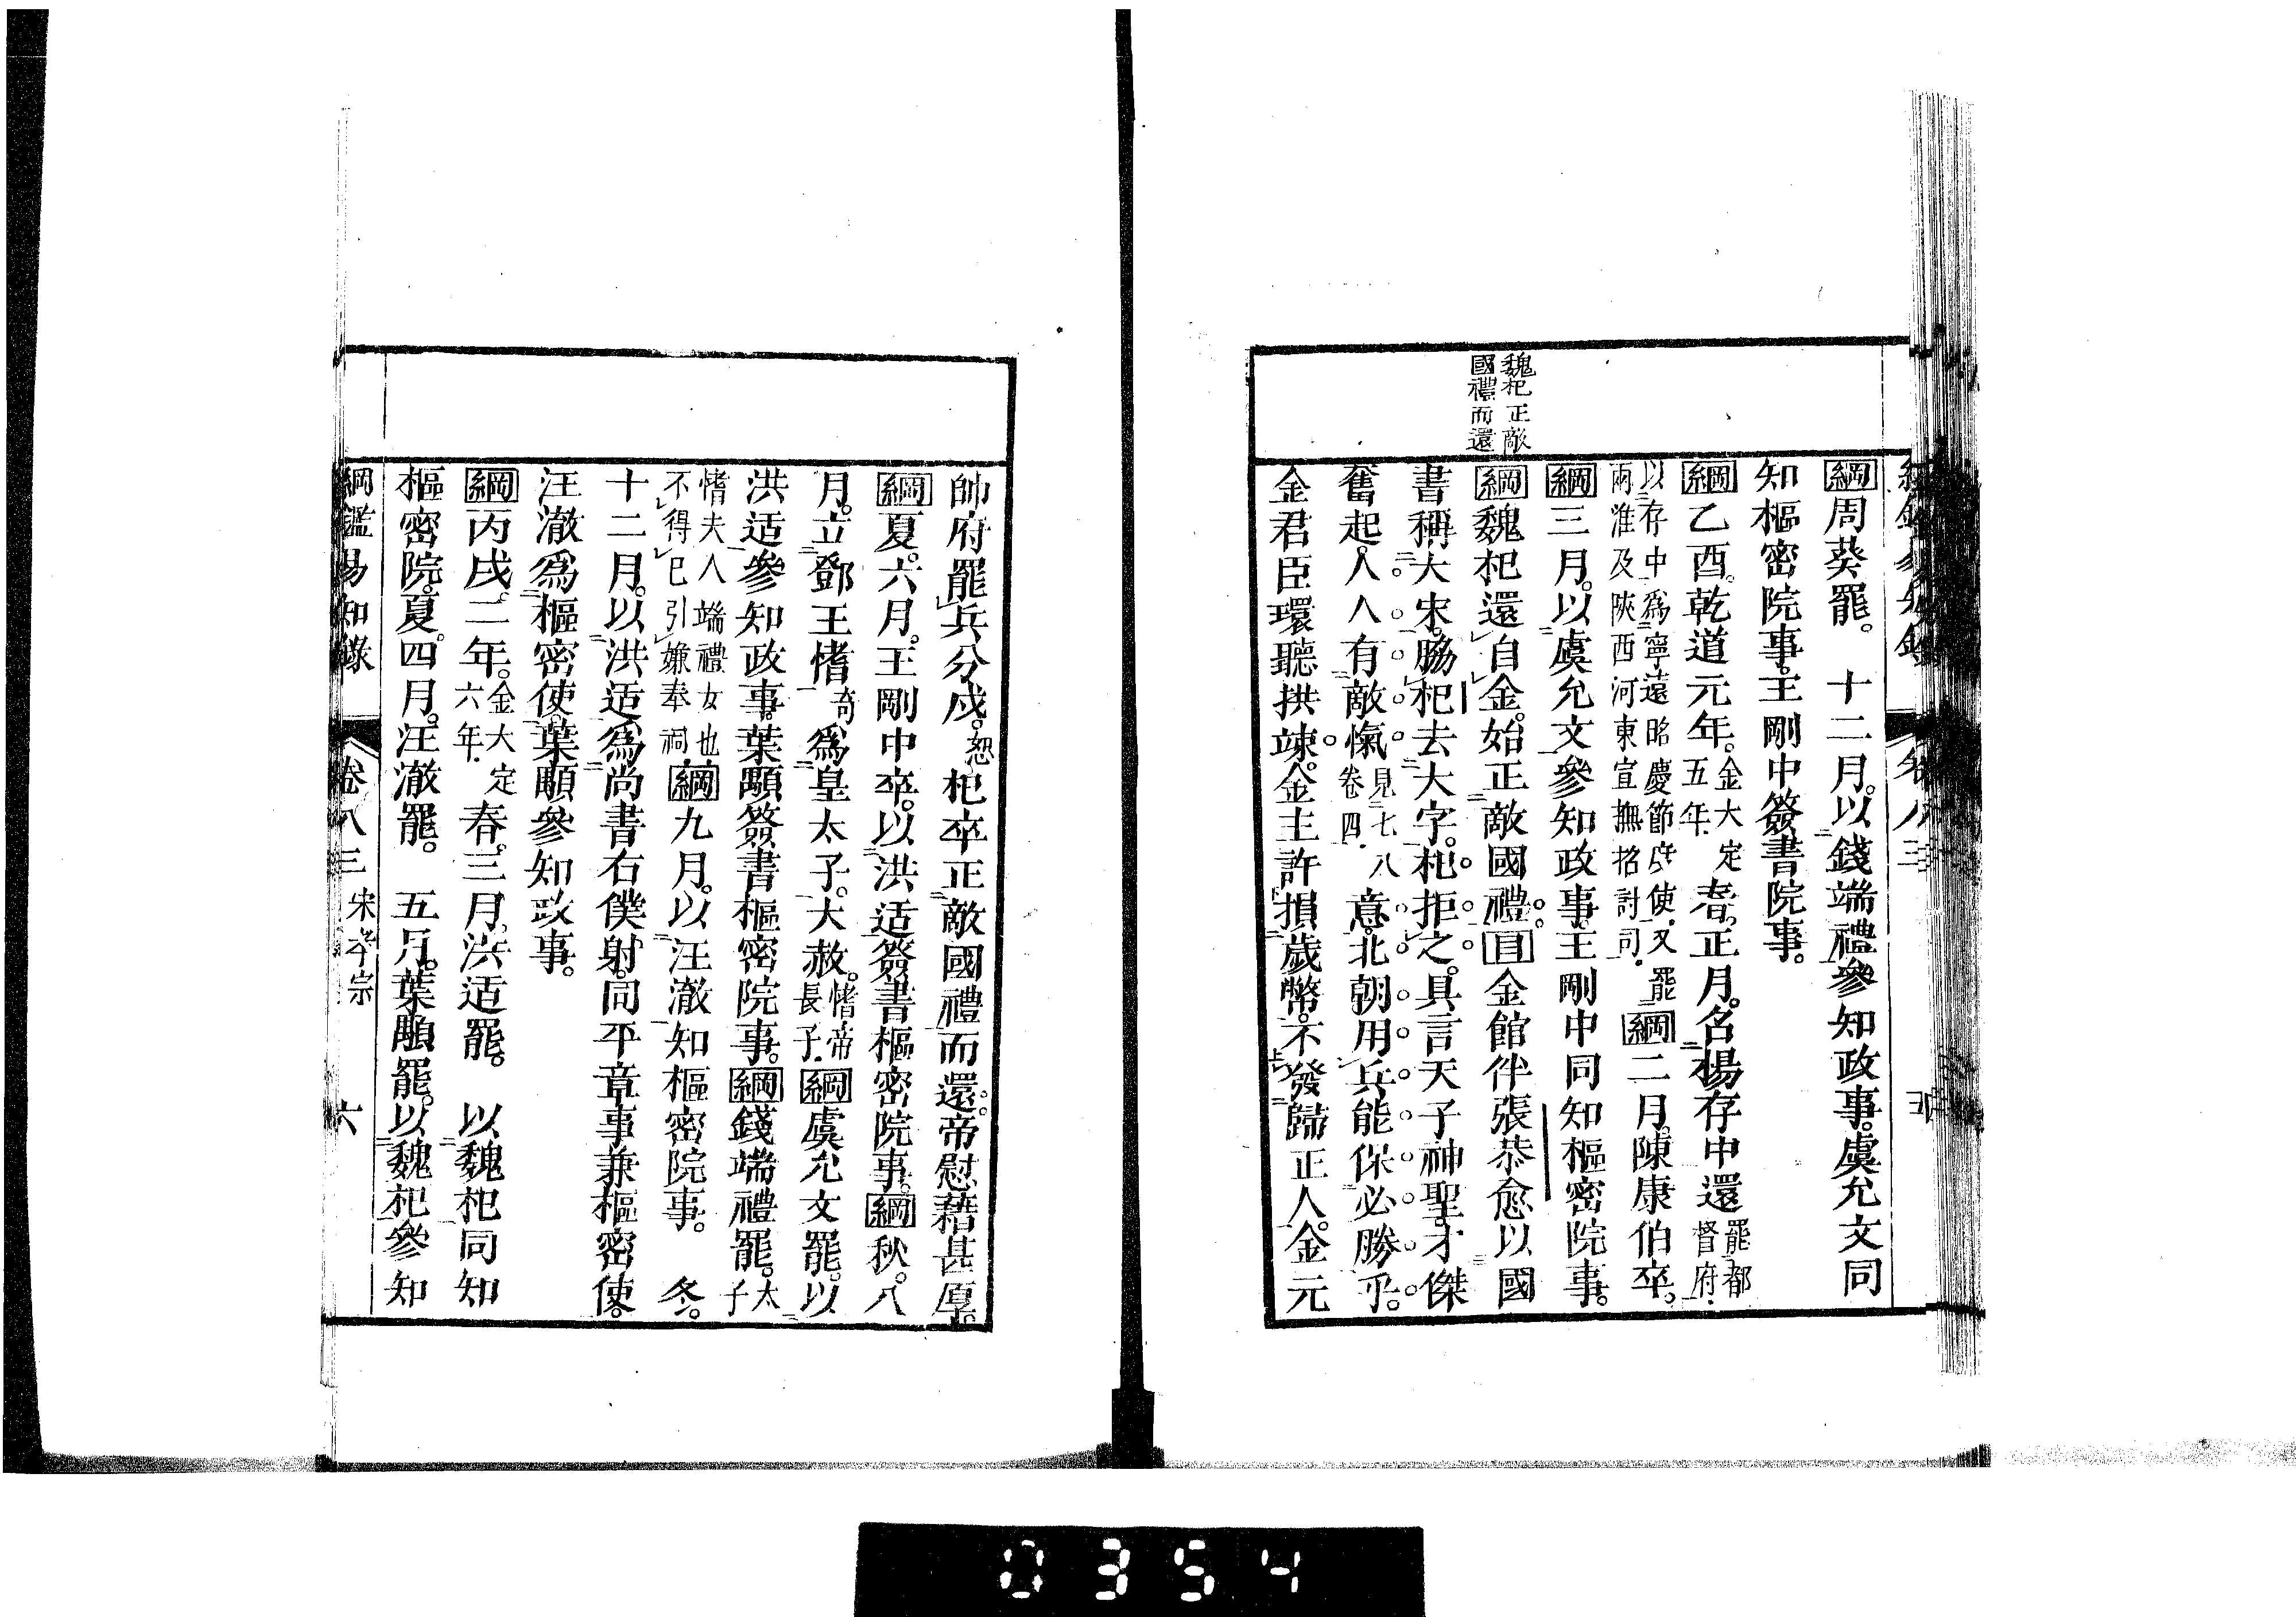 魏杞正敵
國禮而還
綱周葵罷。　十二月。以錢端禮參知政事。虞允文同
知樞密院事。王剛中簽書院事。
綱乙酉。乾道元年。金大定五年.春。正月。召楊存中還罷都督府.
以存中爲寧遠昭慶節度使.又罷兩淮及陝西河東宣撫招討司.綱二月。陳康伯卒。
綱三月。以虞允文參知政事。王剛中同知樞密院事。
綱魏杞還自金。始正敵國禮。目金館伴張恭愈以國
書稱大宋。脇杞去大字。杞拒之。具言天子神聖。才傑
奮起。人人有敵愾見七八卷四.意。北朝用兵。能保必勝乎。
金君臣環聽拱竦。金主許損歲幣。不發歸正人。金元
帥府罷兵分戍。恕杞卒正敵國禮而還。帝慰藉甚厚。
綱夏。六月。王剛中卒。以洪适簽書樞密院事。綱秋。八
月。立鄧王愭奇爲皇太子。大赦。愭帝長子.綱虞允文罷。以
洪适參知政事。葉顒簽書樞密院事。綱錢端禮罷。太子
愭夫人端禮女也不得已引嫌奉祠綱九月。以汪澈知樞密院事。　冬。
十二月。以洪适爲尚書右僕射。同平章事兼樞密使。
汪澈爲樞密使。葉顒參知政事。
綱丙戌。二年。金大定六年.春。三月。洪适罷。　以魏杞同知
樞密院。夏。四月。汪澈罷。　五月。葉顒罷。以魏杞參知
綱鑑易知錄　卷八三　宋孝宗　六
0354